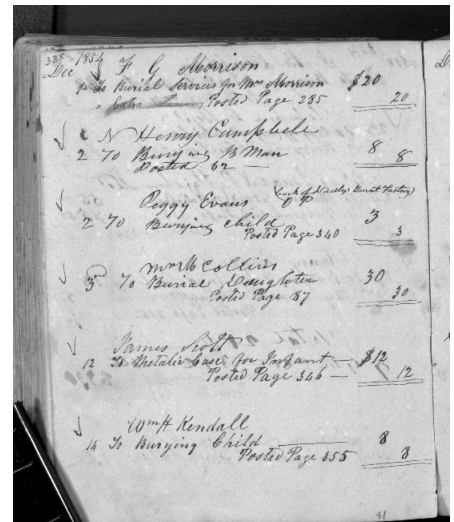 Dec 1854 F G Morrison
To Burial Services for Mrs Morrison $20
" Extra Posted Page 285 20
N Henry Campbell
2 To Burying B Man 8 8
Posted 62 —
Peggy Evans O P
2 To Burying child 3
Posted Page 340 3
Wm M Collins
3 To Burial Daughter 30
Posted Page 87 30
James Scott
12 To Metalic Case for Infant — $12
Posted Page 346 — 12
Wm H Kendall
14 To Burying Child 8
Posted Page 355 8